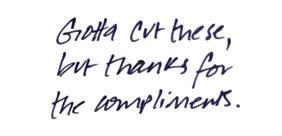 Gotta cut these,
but thanks for
the compliments.